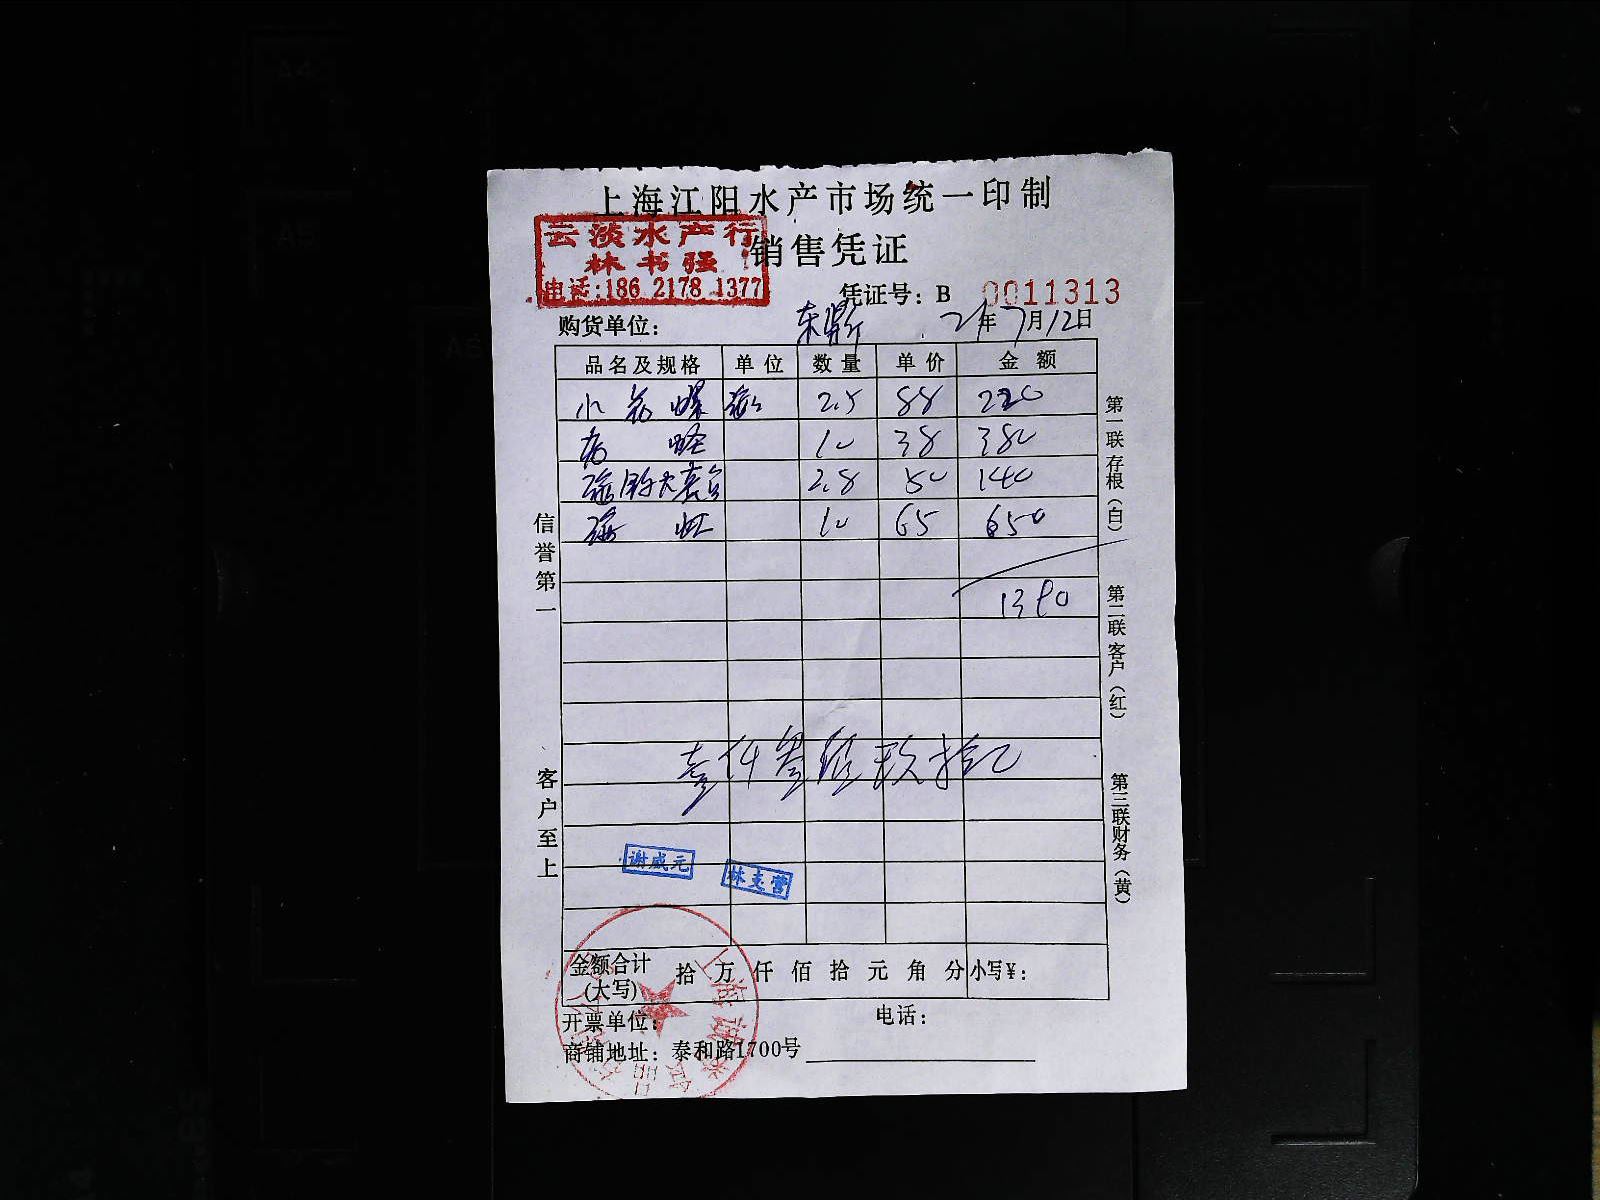 上海江阳水产市场统一印制
云淡水产行
林书强
电话:186 2178 1377
销售凭证
凭证号: B 0011313
购货单位: 21年7月12日
品名及规格 单位 数量 单价 金额
小花螺 2.5 88 220
10 38 380
2.8 50 140
海虹 10 65 650
1390
壹仟叁佰玖拾元
谢威元
林支营
金额合计(大写) 拾 万 仟 佰 拾 元 角 分 小写¥:
开票单位: 电话:
商铺地址: 泰和路1700号
信誉第一
客户至上
第一联存根(白)
第二联客户(红)
第三联财务(黄)